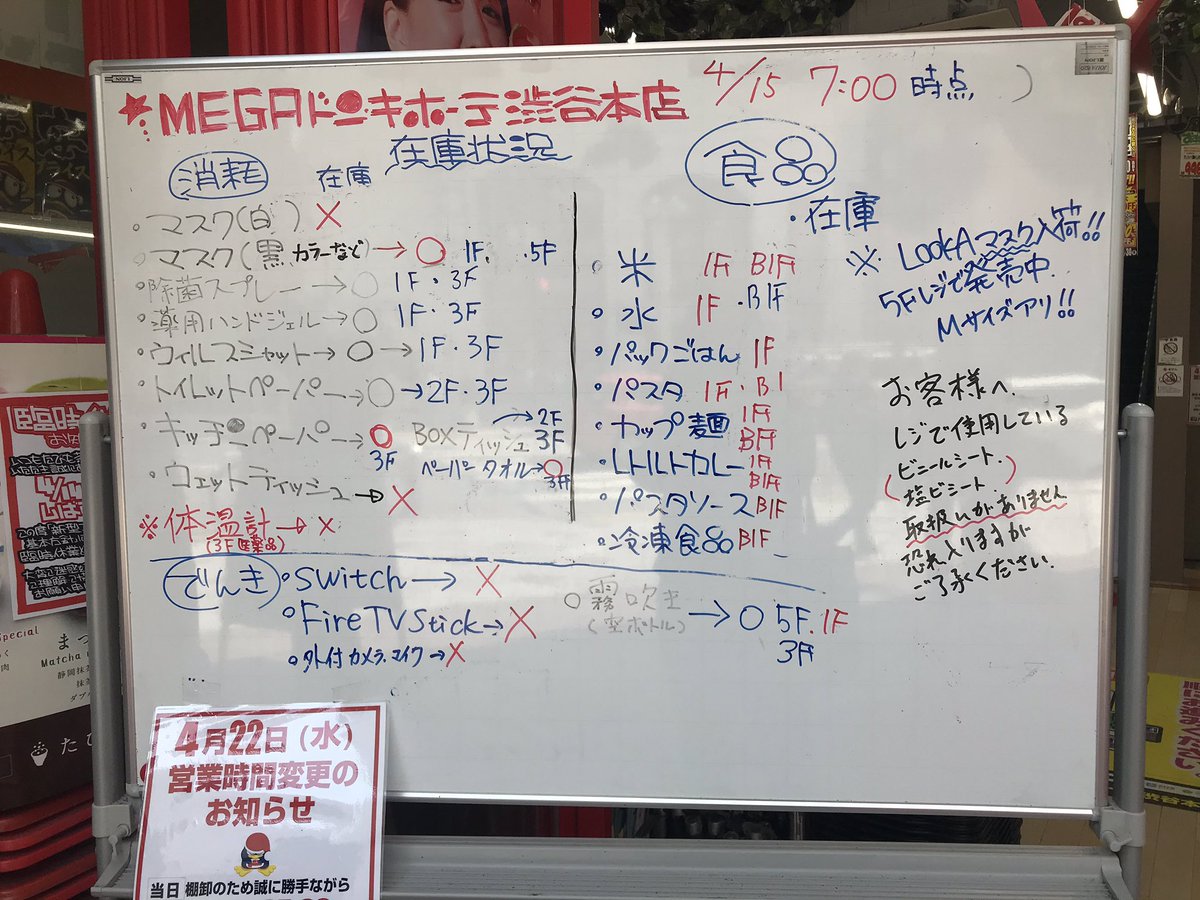 ★MEGAドン.キホーテ渋谷本店
4/15 7:00 時点
在庫状況
消耗 在庫
・マスク(白) ×
・マスク(黒 カラーなど)→○ 1F. .5F
・除菌スプレー→○ 1F・3F
・薬用ハンドジェル→○ 1F・3F
・ウィルスシャット→○→1F・3F
・トイレットペーパー→○→2F・3F
・キッチンペーパー→○ 3F
BOXティッシュ→2F 3F
ペーパータオル→○ 3F
・ウェットティッシュ→×
※体温計→×
(3F医薬品)
食品
・在庫
米 1F B1F
水 1F ・B1F
パックごはん 1F
パスタ 1F・B1
カップ麺 1F B1F
レトルトカレー 1F B1F
パスタソース B1F
冷凍食品 B1F
※LOOKAマスク入荷!!
5Fレジで発売中.
Mサイズアリ!!
お客様へ.
レジで使用している
(ビニールシート.
塩ビシート)
取扱いがありません
恐れ入りますが
ご了承ください.
でんき
・Switch→×
・Fire TV Stick→×
・外付カメラ.マイク→×
○霧吹き
(空ボトル)
→○ 5F.1F
3F
4月22日(水)
営業時間変更の
お知らせ
当日 棚卸のため誠に勝手ながら
臨時
Special
Matcha